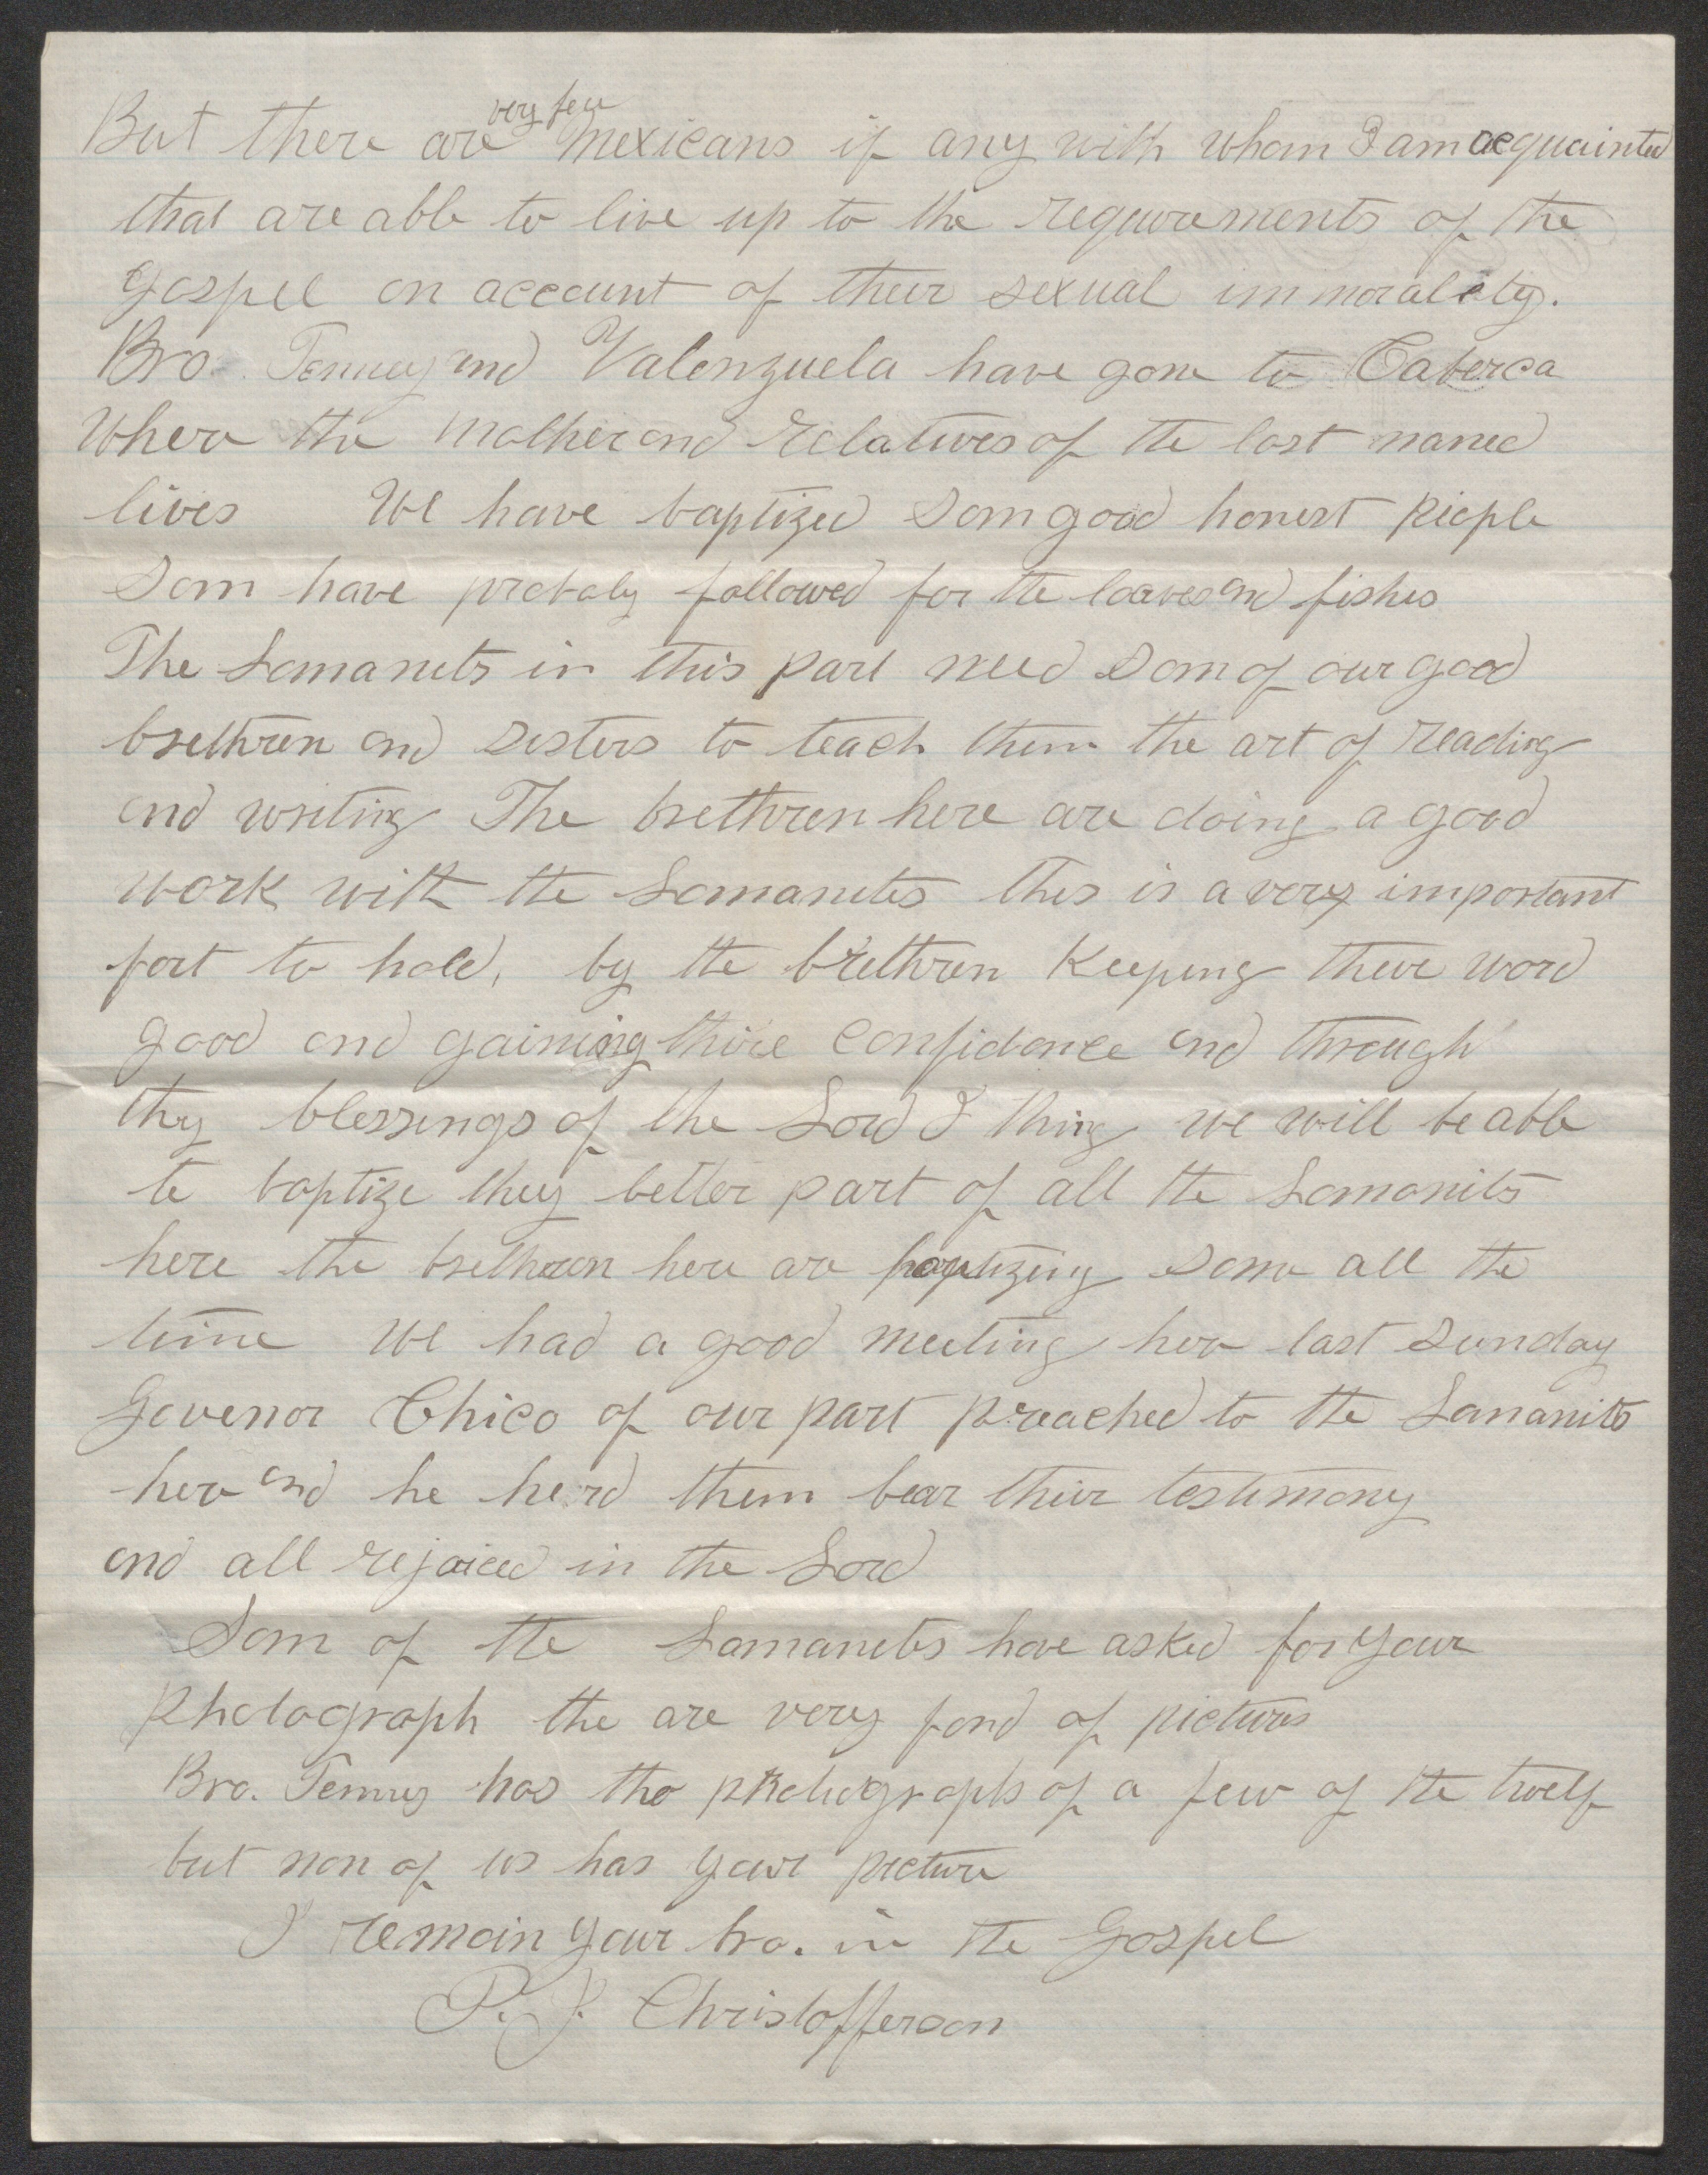 But there are very few Mexicans if any with whom I am acquainted
that are able to live up to the requirements of the
gospel on account of their sexual immorality.
Bro. Tenney and Valenzuela have gone to Caborca
Where the mother and relatives of the last named
lives We have baptized Som good honest people
Som have probaly followed for the loaves and fishes
The Lamanits in this part need Som of our good
brethren and Sisters to teach them the art of reading
and writing The brethren here are doing a good
work with the Lamanites this is a very important
fort to hold, by the brethren Keeping their word
good and gaining thire confidance and through
they blessings of the Lord I thing we will be able
to baptize they better part of all the Lamanits
here the brethren here are baptizing Some all the
time We had a good meeting her last Sunday
Govenor Chico of our part preached to the Lamanits
her and he herd them bear their testimony
and all rejoiced in the Lord
Som of the Lamanites have asked for your
Photograph the are very fond of pictures
Bro. Tenney has the photographs of a few of the twelf
but non of us has your picture
I remain your bro. in the Gospel
P. J. Christofferson